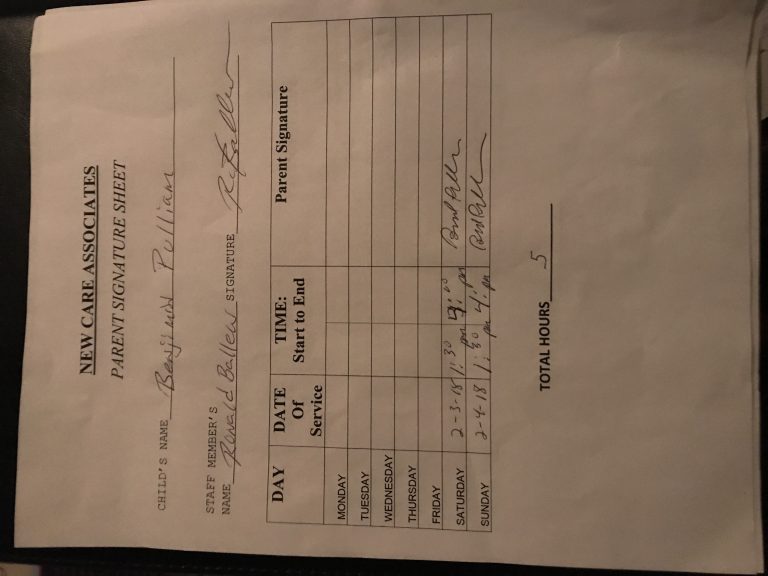 NEW CARE ASSOCIATES
PARENT SIGNATURE SHEET
CHILD'S NAME Benjimin Pulliam
STAFF MEMBER'S
NAME Ronald Ballew SIGNATURE
DAY DATE Of Service TIME: Start to End Parent Signature
MONDAY
TUESDAY
WEDNESDAY
THURSDAY
FRIDAY
SATURDAY 2-3-18 1:30 pm pm
SUNDAY 2-4-18 1:30 pm 4: pm
TOTAL HOURS 5